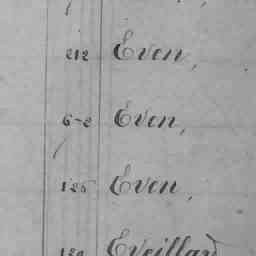 212 Even,
6-2 Even,
125 Even,
Eveillard